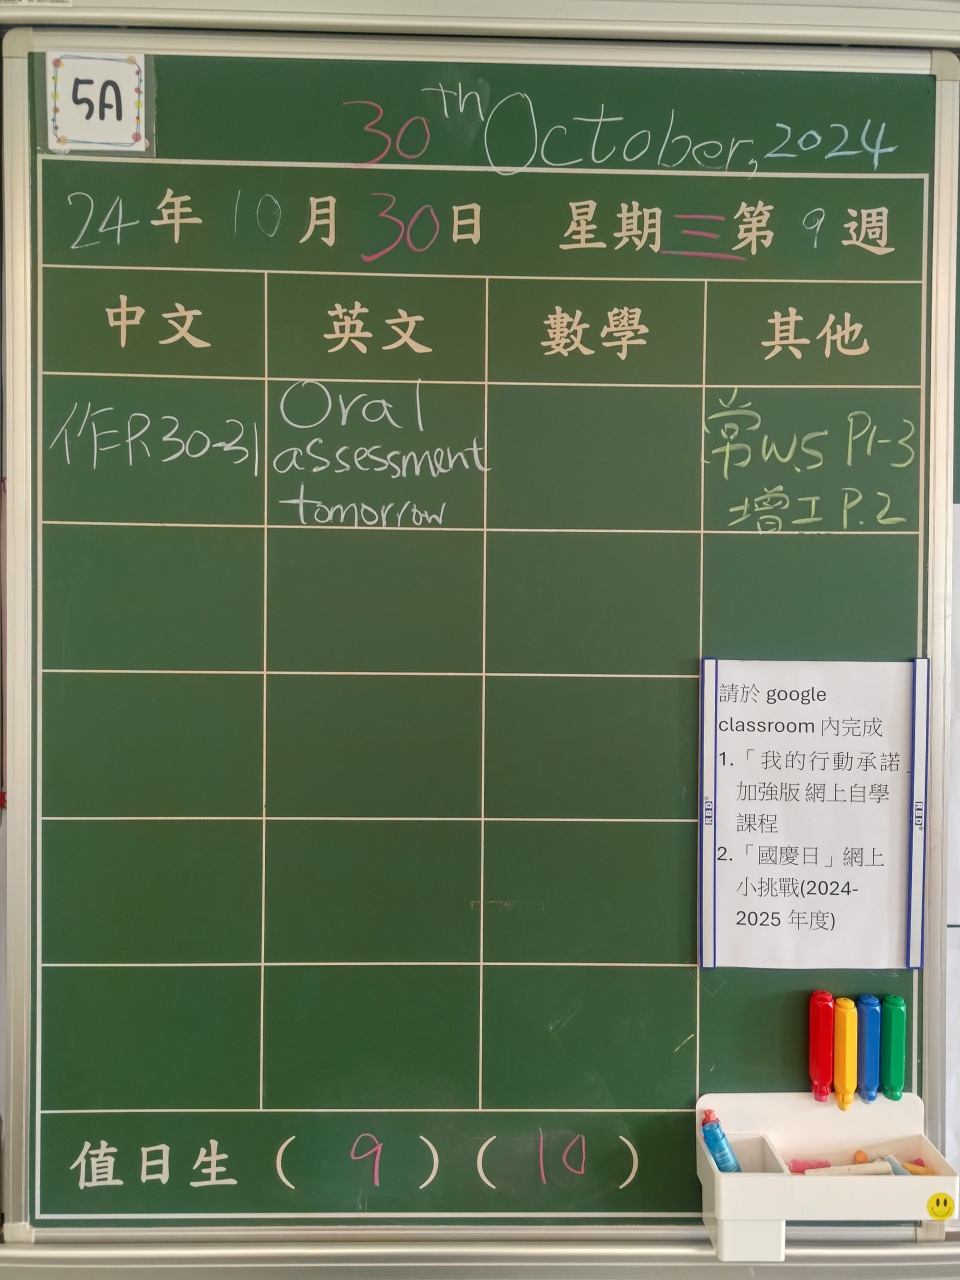 5A
30th October, 2024
24年10月30日 星期三第9週
中文 英文 數學 其他
作P.30-31
Oral
assessment
tomorrow
常W.S P1-3
增工P.2
請於 google
classroom 內完成
1.「我的行動承諾」
加強版 網上自學
課程
2.「國慶日」網上
小挑戰(2024-
2025 年度)
值日生(9)(10)